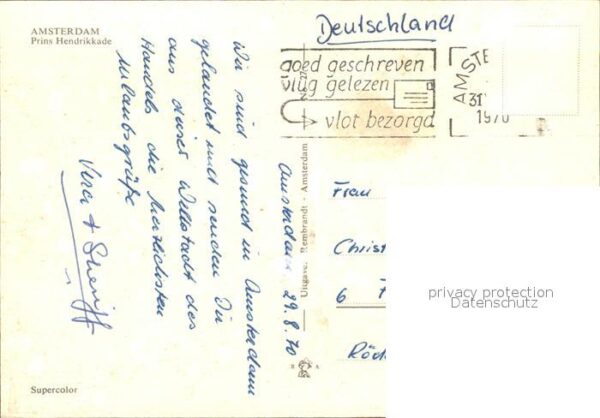 AMSTERDAM
Prins Hendrikkade
Deutschland
goed geschreven
vlug gelezen
vlot bezorgd
AMSTE
31
1970
Amsterdam 29.8.70
Wir sind gesund in Amsterdam
gelandet und senden Dir
aus dieser Weltstadt des
Handels die herzlichsten
Urlaubsgrüße
Vera + Sheriff
Uitgave: Rembrandt - Amsterdam
Frau
Christ
6 F
Röd
privacy protection
Datenschutz
Supercolor
R A